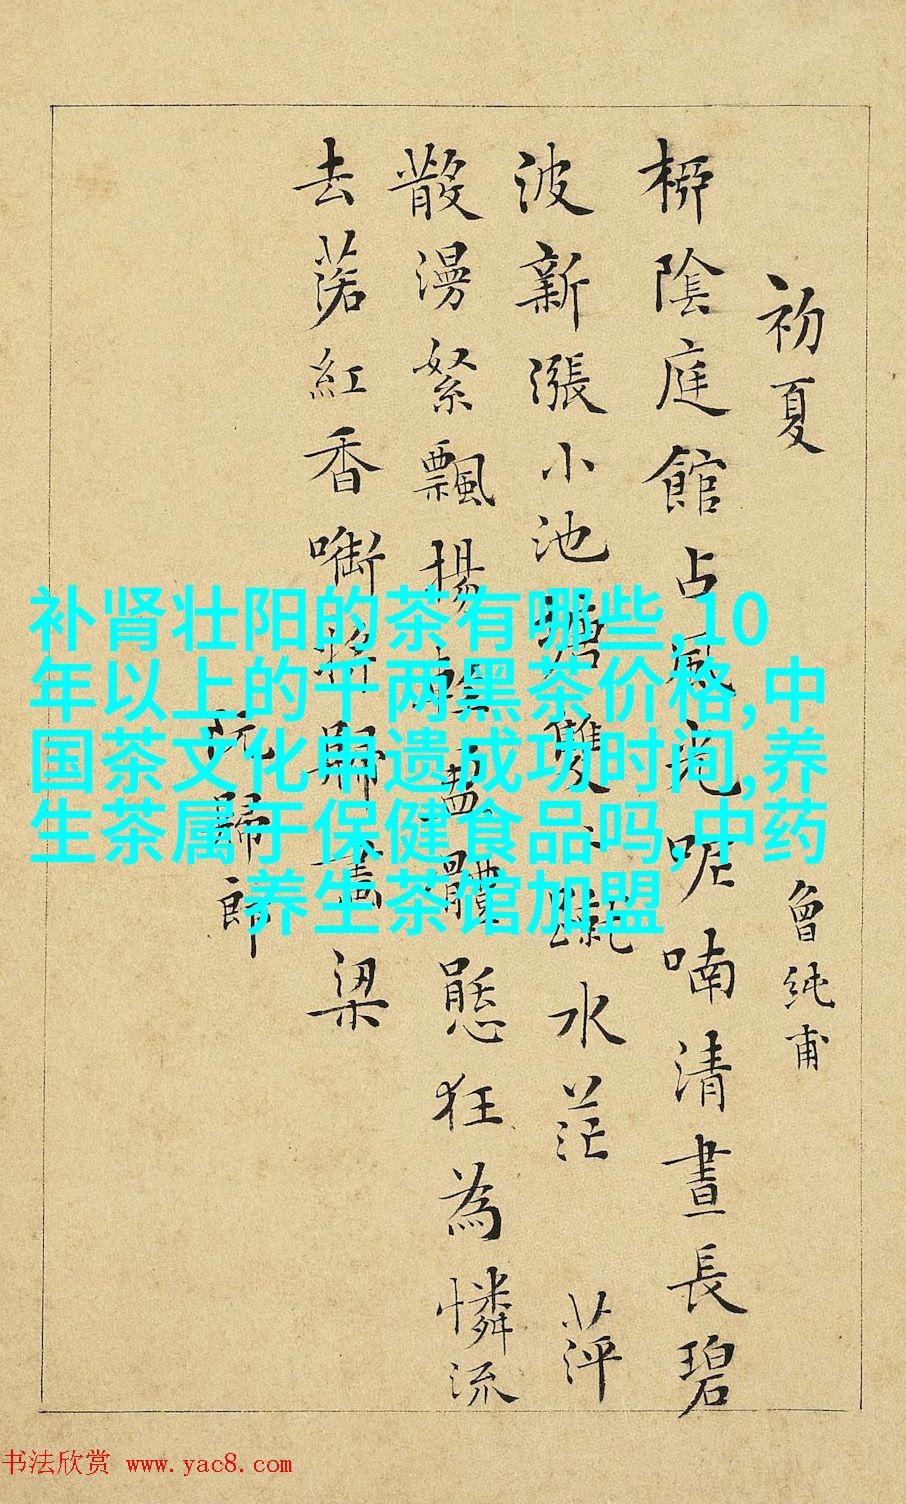 初夏
曾純甫
桺陰庭館占風光呢喃清晝長碧
波新漲小池塘雙〻蹴水茫 萍
散漫絮飄揚輕盈體態狂為憐流
去落紅香啣將歸畫梁
阮歸郎
补肾壮阳的茶有哪些,10
年以上的千两黑茶价格,中
国茶文化申遗成功时间,养
生茶属于保健食品吗,中药
养生茶馆加盟
书法欣赏 www.yac8.com